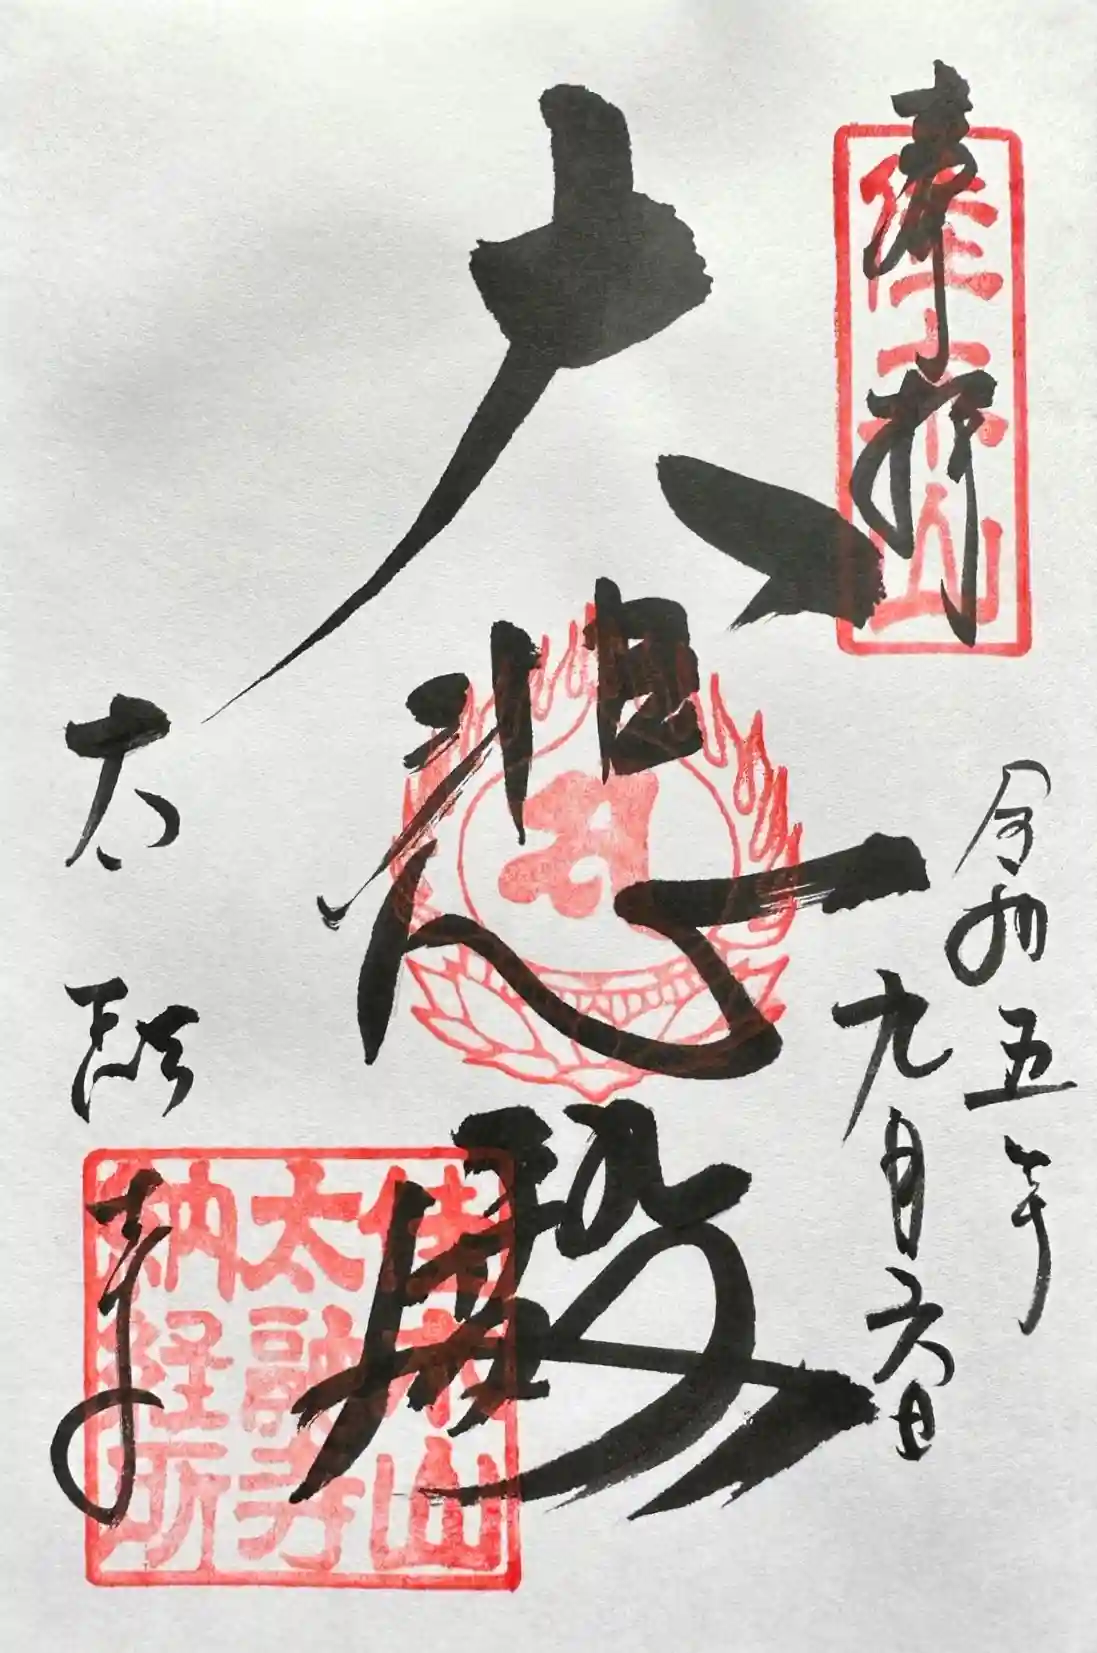 奉拝
佳木山
令和五年
九月六日
大悲殿
太融寺
佳木山
太融寺
納経所